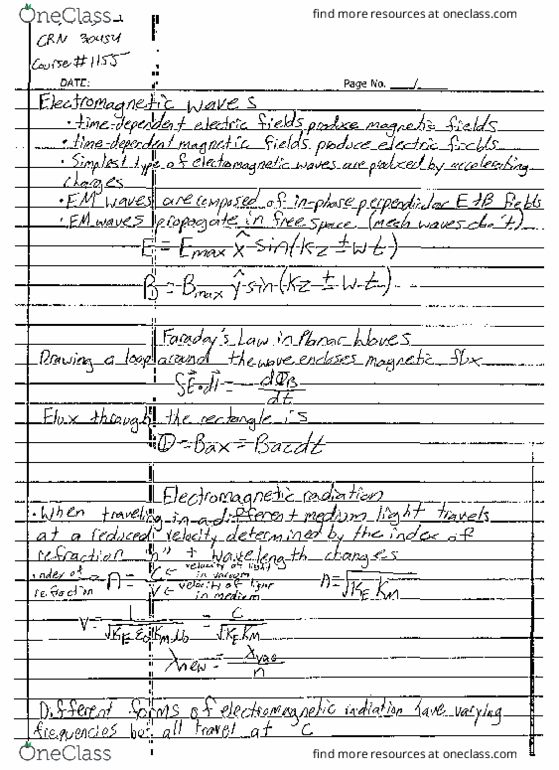 OneClass
find more resources at oneclass.com
CRN 30454
Course # 1155
DATE:
Page No. /
Electromagnetic waves
• time-dependent electric fields produce magnetic fields
• time-dependent magnetic fields produce electric fields
• Simplest type of electomagnetic waves are produced by accelerating
charges
• EM waves are composed of in-phase perpendicular E + B fields
• EM waves propagate in free space (mech waves don't)
E = Emax x̂ sin(kz ± wt)
B = Bmax ŷ sin(kz ± wt)
Faraday's Law in Planar Waves
Drawing a loop around the wave encloses magnetic flux
∮E⃗·dl⃗ = - dΦB/dt
Flux through the rectangle is
Φ = Bax = Bacdt
Electromagnetic radiation
• When traveling in a different medium light travels
at a reduced velocity determined by the index of
refraction "n" + wavelength changes
index of refraction = n = c ← velocity of light in vacuum / v ← velocity of light in medium
n = √KE KM
v = 1/√KE ε0 KM μ0 = c/√KE KM
λnew = λvac/n
Different forms of electromagnetic radiation have varying
frequencies but all travel at c
OneClass
find more resources at oneclass.com